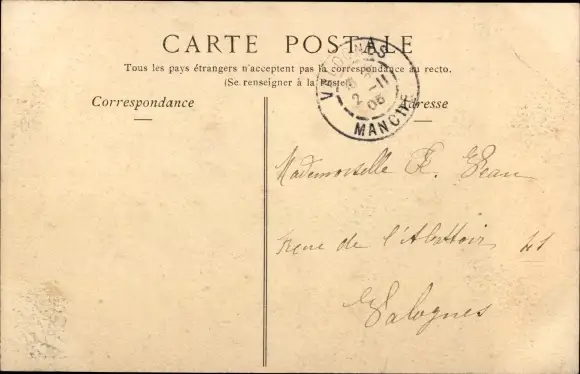 CARTE POSTALE
Tous les pays étrangers n'acceptent pas la correspondance au recto.
(Se renseigner à la Poste)
Correspondance
Adresse
VALOGNES
2-11
05
MANCHE
Mademoiselle E. Jean
Rue de l'Abattoir 41
Valognes